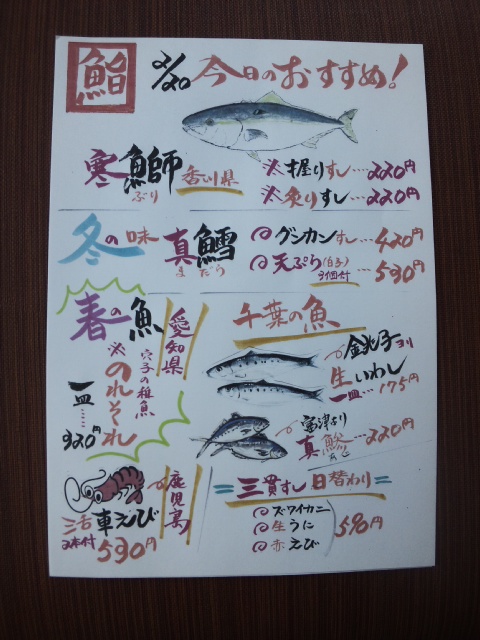 鮨
2/20 今日のおすすめ!
寒鰤 香川県
ぶり
※握りすし…220円
※炙りすし…220円
冬の味
真鱈
まだら
グンカンすし…420円
天ぷら(白子)3個付…530円
春の魚
愛知県
穴子の稚魚
※のれそれ
一皿……320円
千葉の魚
銚子より
生いわし
一皿…175円
富津より
真鯵…220円
あじ
鹿児島
活車えび
2本付 530円
=三貫すし日替わり=
ズワイカニ
生うに
赤えび
590円